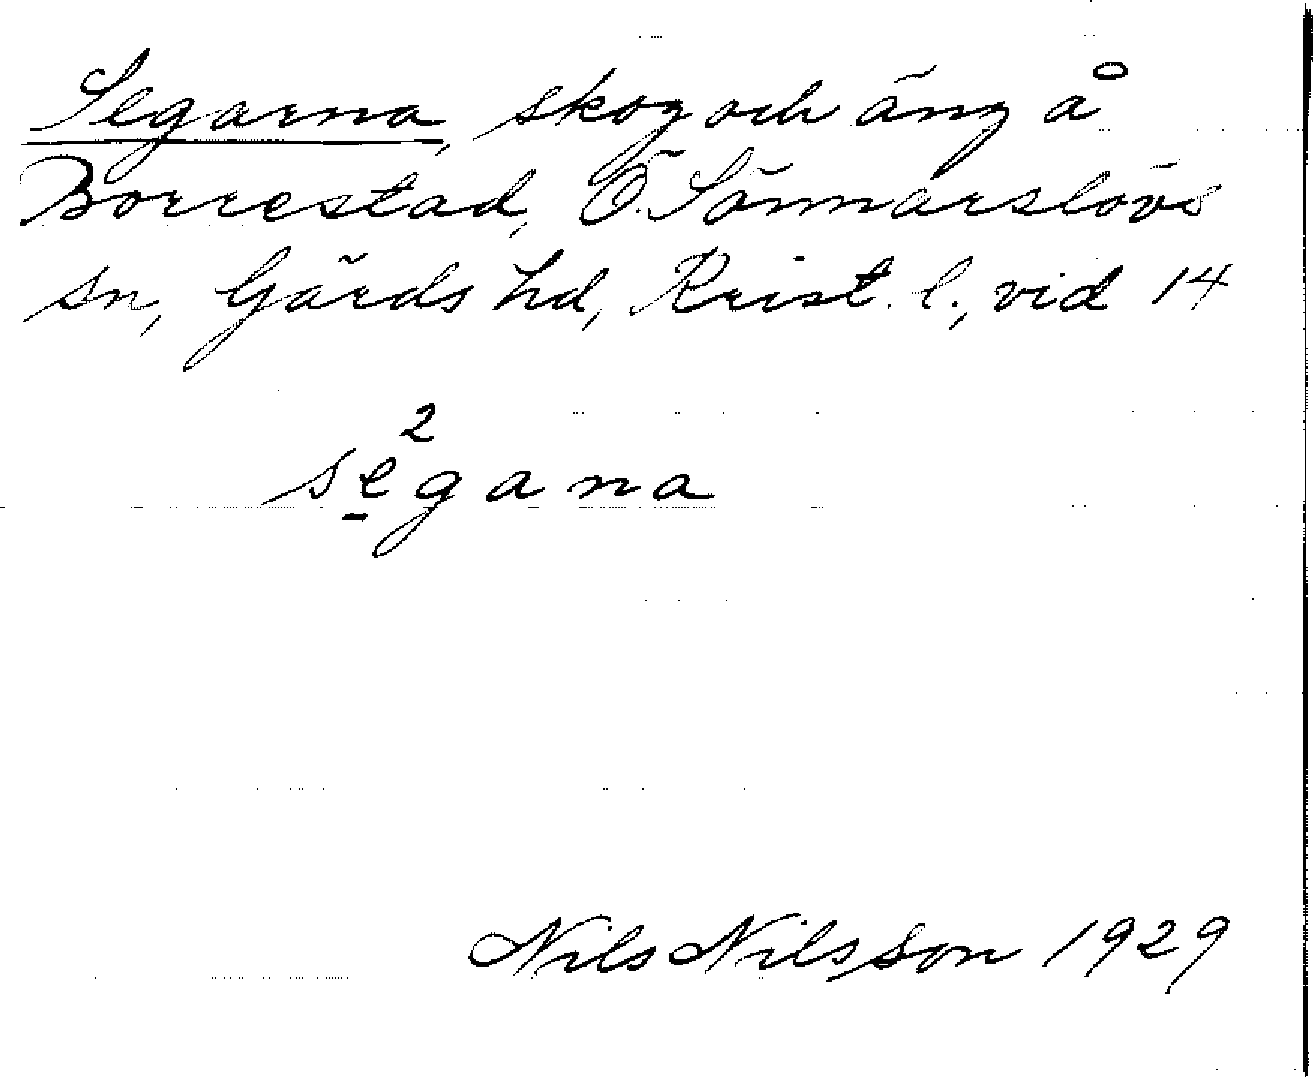 Segarna, skog och äng å
Borrestad, Ö. Sönnarslövs
sn, Gärds hd, Krist. l., vid 14
2
se̱gana
Nils Nilsson 1929